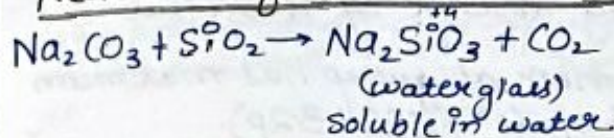 +4
Na₂CO₃ + SiO₂ → Na₂SiO₃ + CO₂
(waterglass)
soluble in water.